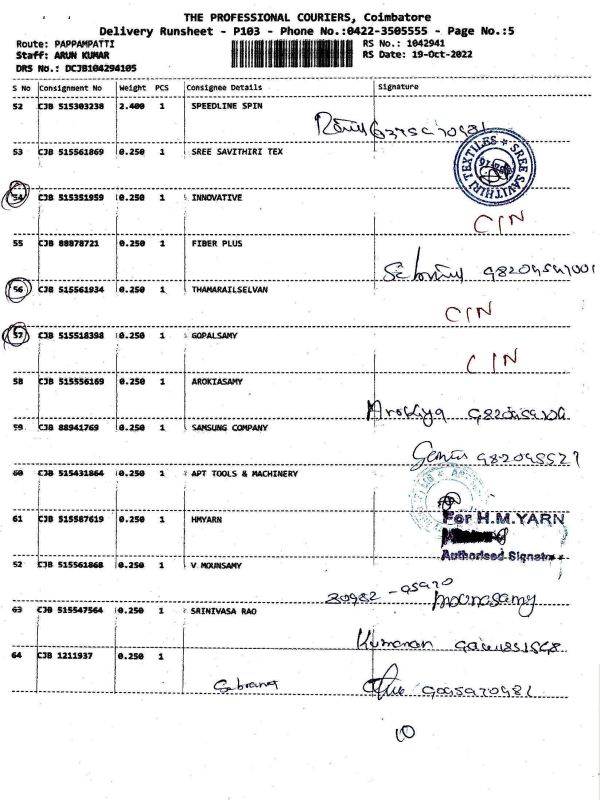 THE PROFESSIONAL COURIERS, Coimbatore
Delivery Runsheet - P103 - Phone No.:0422-3505555 - Page No.:5
Route: PAPPAMPATTI RS No.: 1042941
Staff: ARUN KUMAR RS Date: 19-Oct-2022
DRS No.: DCJB104294105
S No Consignment No Weight PCS Consignee Details Signature
52 CJB 515303238 2.400 1 SPEEDLINE SPIN
53 CJB 515561869 0.250 1 SREE SAVITHIRI TEX
SREE SAVITHIRI TEXTILES
54 CJB 515351959 0.250 1 INNOVATIVE
CIN
55 CJB 88878721 0.250 1 FIBER PLUS
56 CJB 515561934 0.250 1 THAMARAILSELVAN
CIN
57 CJB 515518398 0.250 1 GOPALSAMY
CIN
58 CJB 515556169 0.250 1 AROKIASAMY
59 CJB 88941769 0.250 1 SAMSUNG COMPANY
60 CJB 515431864 0.250 1 APT TOOLS & MACHINERY
61 CJB 515587619 0.250 1 HMYARN
For H.M.YARN
Authorised Signator
52 CJB 515561868 0.250 1 V MOUNSAMY
moonasamy
63 CJB 515547564 0.250 1 SRINIVASA RAO
Kumaran
64 CJB 1211937 0.250 1
10